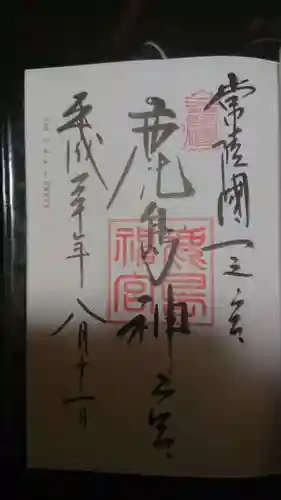 常陸國一之宮
鹿島神宮
鹿島
神宮
平成二十年八月十一日